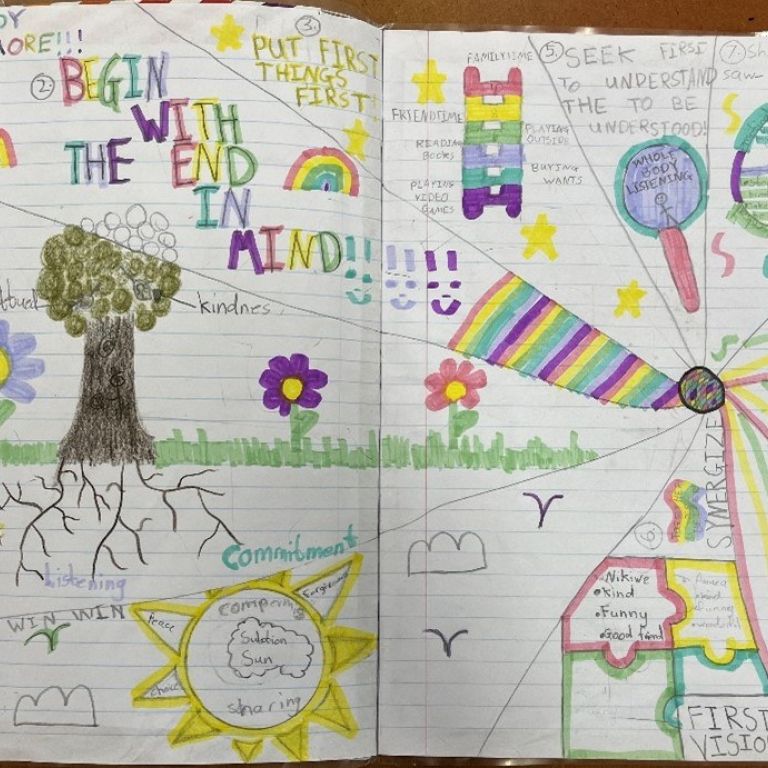 MORE!!!
2. BEGIN
WITH
THE END
IN
MIND!!!!
3.
PUT FIRST
THINGS
FIRST
kindnes
Listening
Commitment
WIN WIN
Peace
Forgiveness
Choice
Solution
Sun
sharing
FAMILYTIME
FRIENDTIME
PLAYING
OUTSIDE
READING
BOOKS
BUYING
WANTS
PLAYING
VIDEO
GAMES
5. SEEK FIRST
TO UNDERSTAND
THE TO BE
UNDERSTOOD!
WHOLE
BODY
LISTENING
7. Sh
saw
6.
SYNERGIZE
Nikiwe
•Kind
•Funny
•Good friend
FIRST
VISIO